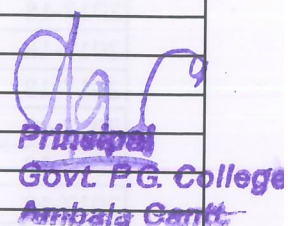 Principal
Govt. P.G. College
Ambala Cantt.